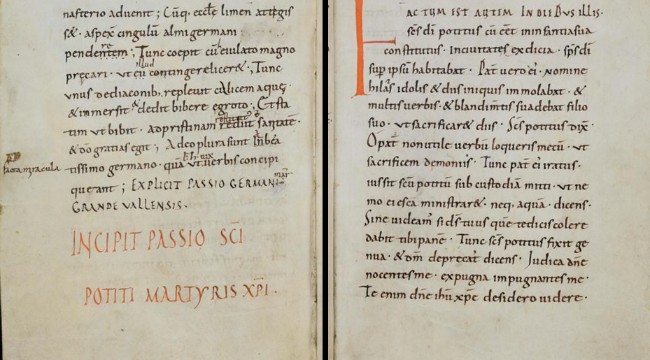 nasterio advenit ; Cūq; eccłe limen attigis
s& · aspex cingulū almi germani
pendentem ; Tunc coepit cū eiulato magno
p̄cari · ut eū contingere licer& ; Tunc
unus de diaconib; replevit cúlicem aquę
& immersit & dedit bibere ęgroto ; Et sta
tim ut bibit · ad pristinam rediit sanitatē ·
& dō gratias egit ; Adeo plura sunt in bea
tissimo germano · quā ut verbis concipi
queant ; EXPLICIT PASSIO GERMANI
GRANDE VALLENSIS ·
miracula
INCIPIT PASSIO SCĪ
POTITI MARTYRIS XPĪ ·
FACTUM EST AUTEM IN DIEBUS ILLIS ·
scs̄ di potitus cū eēt in infantia sua
constitutus · in civitate ex dicia · sps̄ di
sup ipsū habitabat · Pat̄ vero ei · nomine
hilas idolis & diis iniquis immolabat · &
multis verbis & blandimtis suadebat filio
suo · ut sacrificar& diis · Scs̄ potitus dix̄ ·
O pat̄ non utile verbū loqueris mecū · ut
sacrificem demoniis · Tunc pat̄ ei iratus ·
iussit scm̄ potitū sub custodia mitti · ut ne
mo ei esca ministrar& · neq; aquā · dicens ·
Sine videam si ds̄ tuus quē te dicis colere
dabit tibi panē · Tunc scs̄ potitus fixit ge
nua · & dm̄ deprecat̄ dicens · Iudica dnē
nocentes me · expugna impugnantes me ·
Te enim dnē ihū xpe desidero videre ·